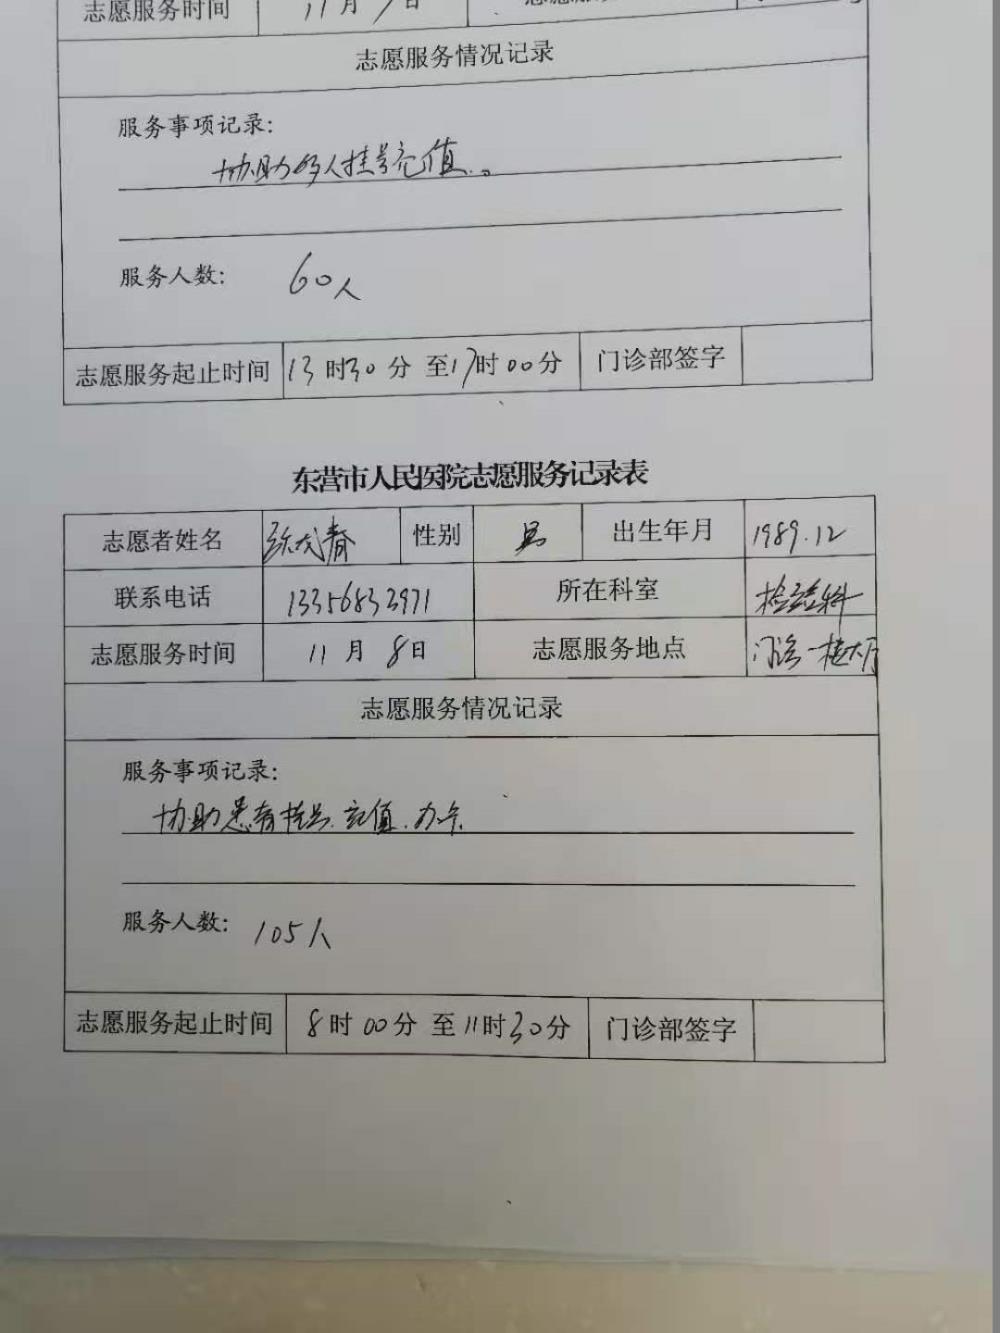 志愿服务时间 11 月 7 日
志愿服务情况记录
服务事项记录:
协助多人挂号充值。
服务人数: 60人
志愿服务起止时间 13 时30 分 至17时00分 门诊部签字
东营市人民医院志愿服务记录表
志愿者姓名 性别 男 出生年月 1989.12
联系电话 13356833971 所在科室 检验科
志愿服务时间 11 月 8日 志愿服务地点 门诊一楼大厅
志愿服务情况记录
服务事项记录:
协助患者挂号.充值.办卡
服务人数: 105人
志愿服务起止时间 8时 00分 至 11时30分 门诊部签字